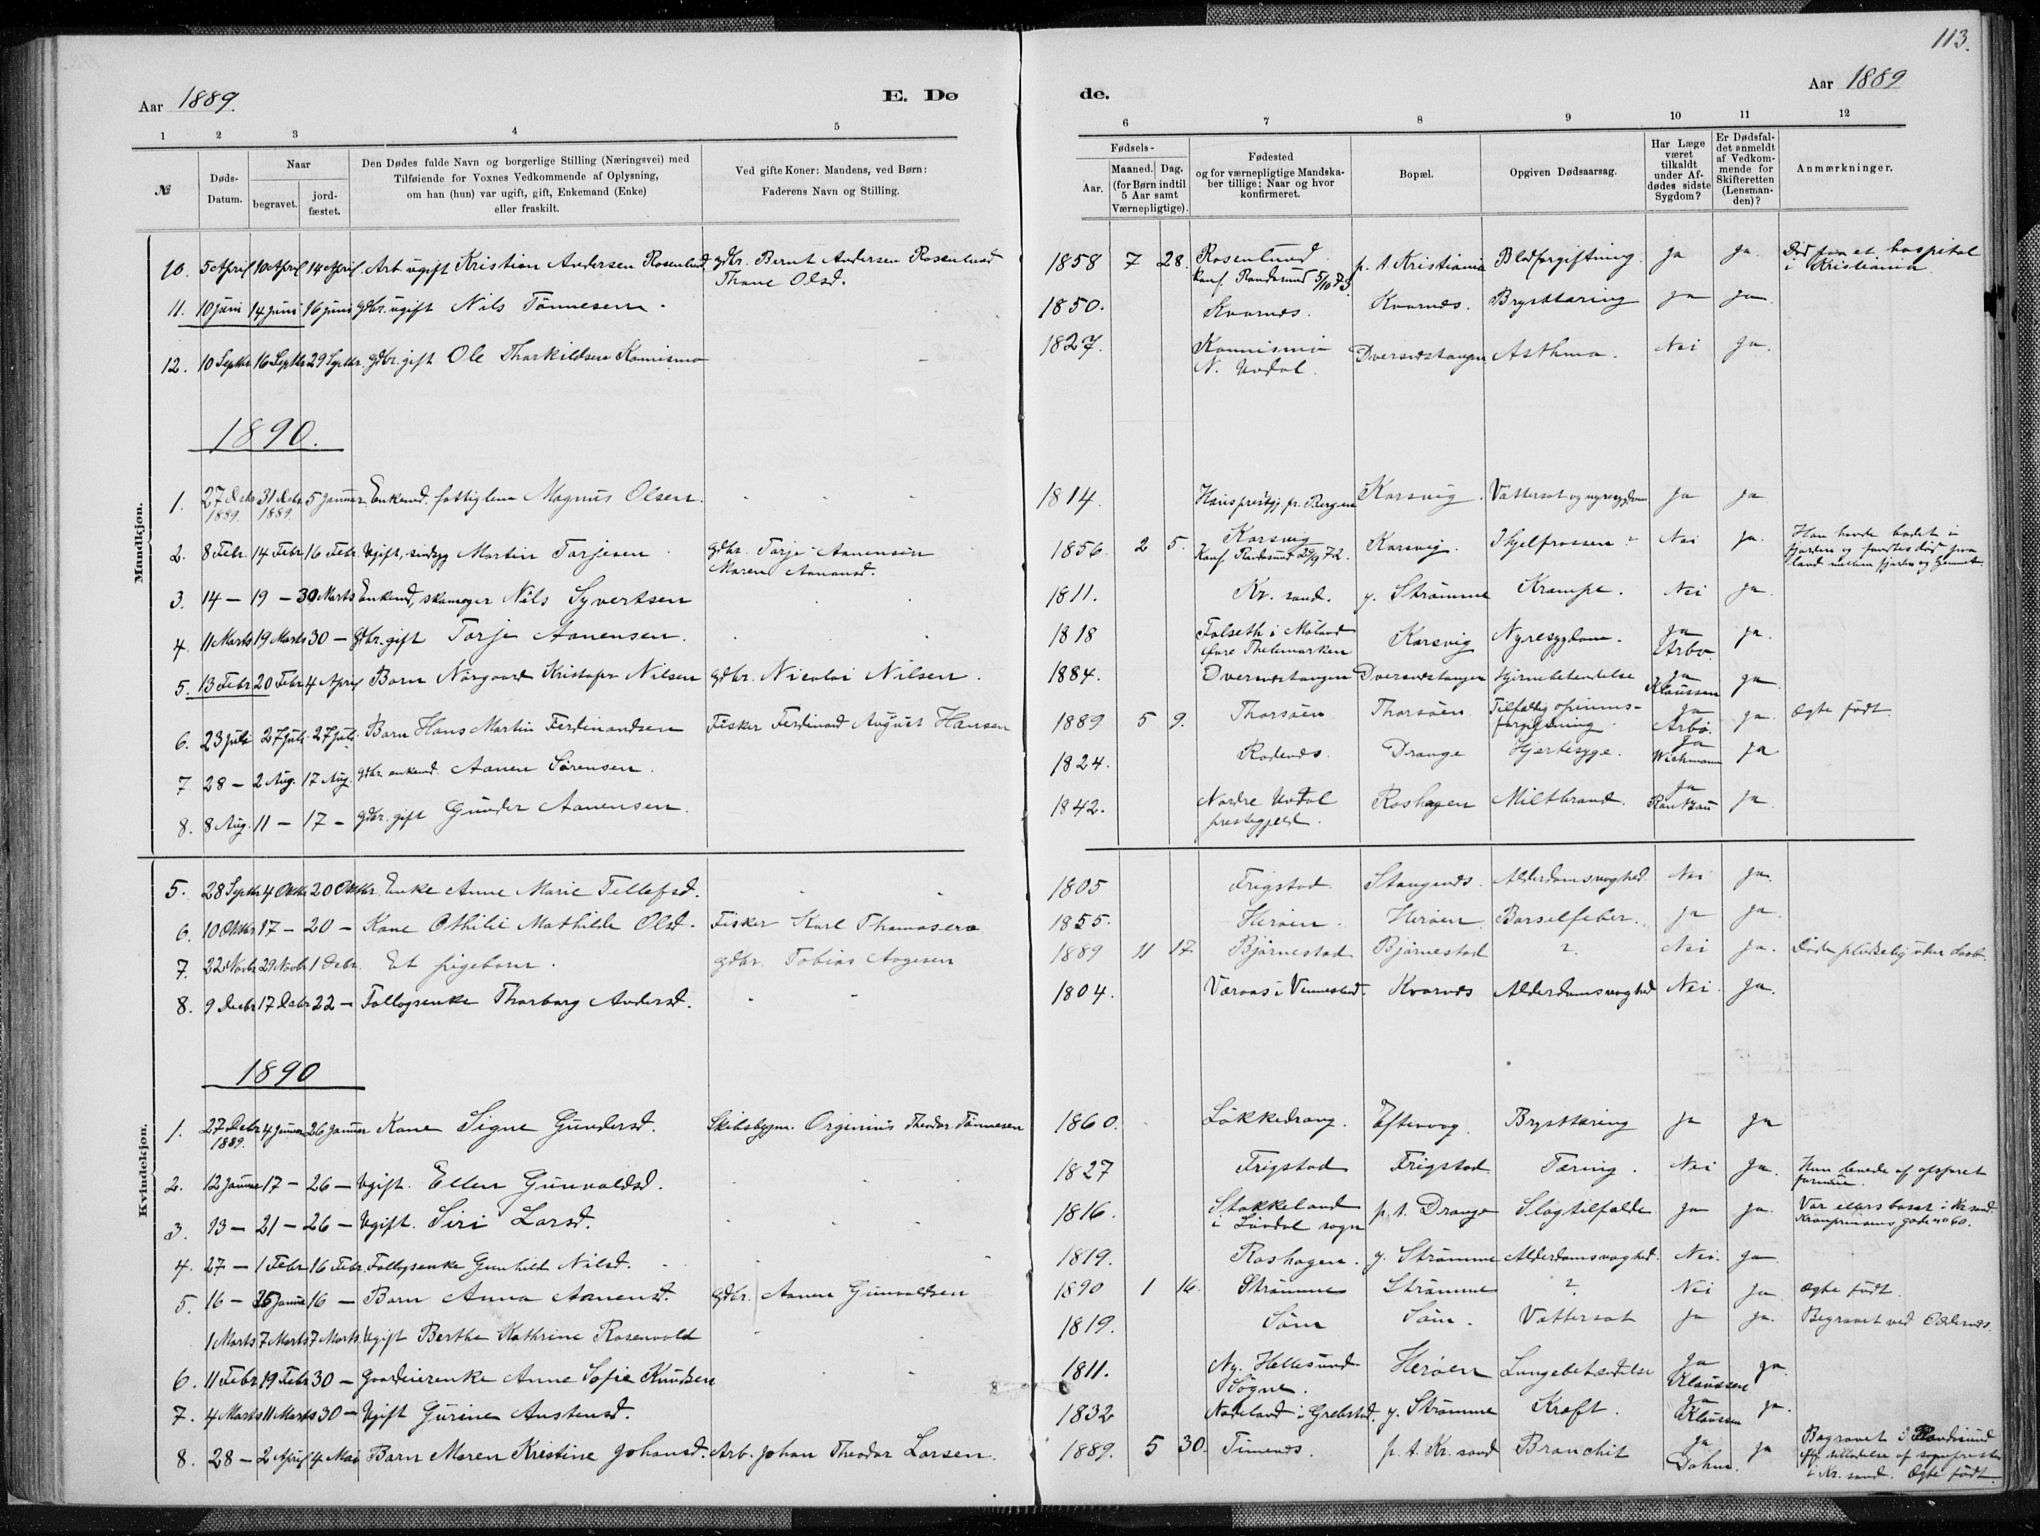 113.
Aar 1889. E. Dø de. Aar 1889
1 2 3 4 5 6 7 8 9 10 11 12
№ Døds-Datum. Naar begravet. jord-fæstet. Den Dødes fulde Navn og borgerlige Stilling (Næringsvei) med Tilføiende for Voxnes Vedkommende af Oplysning, om han (hun) var ugift, gift, Enkemand (Enke) eller fraskilt. Ved gifte Koner: Mandens, ved Børn: Faderens Navn og Stilling. Fødsels- Aar. Maaned. Dag. (for Børn indtil 5 Aar samt Værnepligtige). Fødested og for værnepligtige Mandskaber tillige: Naar og hvor konfirmeret. Bopæl. Opgiven Dødsaarsag. Har Læge været tilkaldt under Afdødes sidste Sygdom? Er Dødsfaldet anmeldt af Vedkommende for Skifteretten (Lensmanden)? Anmærkninger.
Mandkjøn.
10. 5 April 10 April 14 April Arb ugift Kristian Andersen Rosenlund gdbr. Bernt Andersen Rosenlund 1858 7 28. Rosenlund p. t. Kristiania Blodforgiftning. ja ja. Død paa et hospital
Thone Olsd. konf. Randøsund 5/10 73. i Kristiania.
11. 10 juni 14 juni 16 juni gdbr. ugift Nils Tønnesen. 1850. Kvarnes. Kvarnes. Brysttæring ja ja
12. 10 Septbr 16 Septbr 29 Septbr. gdbr. gift Ole Thorkildsen Konnismo 1827. Konnismo Dversnestangen Asthma. Nei ja.
N. Undal.
1890.
1. 27 Debr 31 Debr 5 januar Enkemd. fattiglem Magnus Olsen. 1814. Hausprestgj. pr. Bergen Korsvig. Vattersot og nyresygdom ja ja
1889. 1889.
2. 8 Febr. 14 Febr 16 Febr. Ugift, sindsyg Martin Torjesen gdbr. Torje Aanensen 1856. 2 5. Korsvig Korsvig. Ihjelfrossen Nei ja. Han havde badet i
Maren Aanensd. Konf. Randøsund 29/9 72. fjorden og fandtes død paa
land mellem fjorden og hjemmet.
3. 14 — 19 — 30 Marts Enkemd, skomager Nils Syvertsen 1811. Kr. sand. y. Strømme Krampe. Nei ja.
4. 11 Marts 19 Marts 30 — gdbr. gift Torje Aanensen. 1818 Folseth i Moland Korsvig Nyresygdom. ja ja.
øvre Thelemarken Arbo.
5. 13 Febr 20 Febr 4 April Barn Norgaard Kristofer Nilsen gdbr. Nicolai Nilsen. 1884. Dversnestangen Dversnestangen Hjernebetændelse ja ja
Klaussen
6. 23 juli 27 juli 27 juli. Barn Hans Martin Ferdinandsen Fisker Ferdinand August Hansen 1889 5 9. Thorsøen Thorsøen. Tilfældig opiums- ja ja. Ægte født.
forgiftning. Arbo.
7 28 — 2 Aug. 17 Aug. gdbr. enkemd. Aanen Sørensen. 1824. Rodenes. Drange Hjertesyge. ja ja
Wichmann
8. 8 Aug. 11 — 17 — gdbr. gift Gunder Aanensen. 1842. Nordre Undal Roshagen Miltbrand. ja ja.
prestegjeld.
Kvindekjøn.
5. 28 Septbr 4 Oktbr 20 Oktbr. Enke Anne Marie Tellefsd. 1805 Frigstad. Stangenes. Alderdomssvaghed. Nei ja.
6. 10 Oktbr 17 — 20 — Kone Othilie Mathilde Olsd. Fisker Karl Thomasen 1855. Herøen. Herøen Barselfeber. ja ja.
7. 22 Novbr 29 Novbr 1 Debr. Et pigebarn. gdbr. Tobias Aagesen 1889 11 17. Bjørnestad Bjørnestad ? Nei ja. Døde pludselig uden daab
8. 9 Decbr 17 Decbr 22 — Follogsenke Thorborg Andersd. 1804. Væraas i Vennesland. Kvarnes Alderdomssvaghed Nei. ja.
1890
1. 27 Debr 4 januar 26 januar Kone Signe Gundersd. Skibsbygm. Orginius Theodor Tønnesen 1860. Løkkedrang. Eftevaag. Brysttæring ja ja
1889.
2. 12 januar 17 — 26 — Ugift. Ellen Gunvaldsd. 1827 Frigstad Frigstad Tæring. Nei ja. Hun levede af opsparet
formue.
3. 13 — 21 — 26 — Ugift. Siri Larsd. 1816. Stokkeland p. t. Drange Slagtilfælde ja ja. Var ellers bosat i Kr. sand.
i Søvdal sogn Kronprinsens gade no 60.
4. 27 — 1 Febr 16 Febr. Follogsenke Gunhild Nilsd. 1819. Roshagen. y. Strømme Alderdomssvaghed. Nei. ja
5. 16 — 25 januar 16 — Barn Anna Aanensd. gdbr. Aanen Gunvaldsen 1890 1 16. Strømme Strømme ? Nei ja. Ægte født.
1 Marts 7 Marts 7 Marts. Ugift Berthe Kathrine Rosenvold 1819. Søm Søm. Vattersot ja ja. Begravet ved Oddernes.
6. 11 Febr 19 Febr 30 — Gaardeierenke Anne Sofie Knudsen 1811. Ny. Hellesund Herøen Lungebetændelse ja ja.
Søgne. Klaussen
7. 4 Marts 11 Marts 30 — Ugift Gurine Austensd. 1832 Nodeland i Greipstad. y. Strømme Kræft. ja ja.
Klaussen
8. 28 — 2 April 4 Mai Barn Maren Kristine Johansd. Arb. Johan Theodor Larsen. 1889. 5 30. Timenes. p. t. Kr. sand Bronchit ja ja Begravet i Randøsund
Dahm. eft. tilladelse af sognepresten
i Kr. sand. Ægte født.